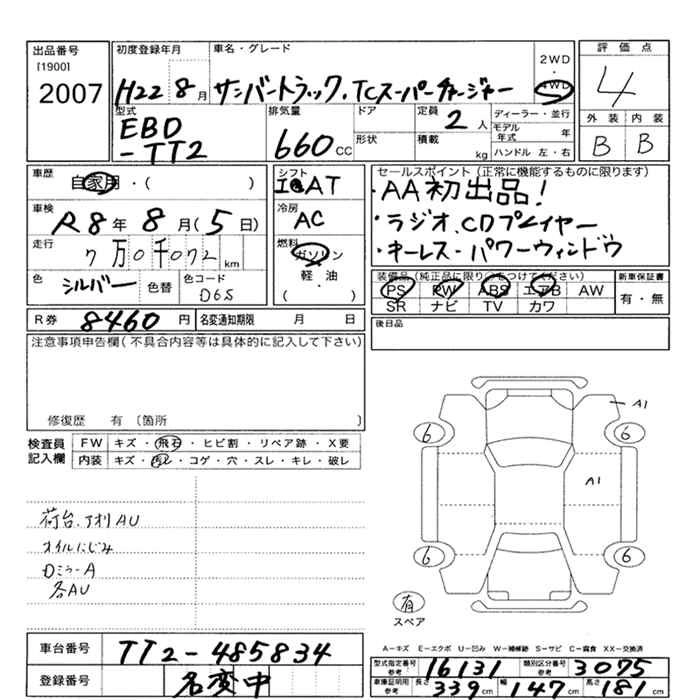 出品番号
[1900]
2007
初度登録年月
H22 8月
車名・グレード
サンバートラック・TCスーパーチャージャー
2WD
・
4WD
評価点
4
外装 内装
B B
型式
EBD
-TT2
排気量
660cc
ドア
形状
定員
2人
積載 kg
ディーラー・並行
モデル年式 年
ハンドル 左・右
車歴
自家用・( )
車検
R8年 8月(5日)
走行
7万0千072km
色
シルバー
色替
色コード
D6S
シフト
AT
冷房
AC
燃料
ガソリン
軽・油
( )
セールスポイント(正常に機能するものに限ります)
・AA初出品!
・ラジオ、CDプレイヤー
・キーレス・パワーウィンドウ
装備品(純正品に限り○をつけてください)
PS PW ABS エアB AW
SR ナビ TV カワ
新車保証書
有・無
R券 8460円
名変通知期限 月 日
後日品
注意事項申告欄(不具合内容等は具体的に記入して下さい)
修復歴 有 〔箇所 〕
検査員
記入欄
FW キズ・飛石・ヒビ割・リペア跡・X要
内装 キズ・汚レ・コゲ・穴・スレ・キレ・破レ
荷台、アオリAU
オイルにじみ
Dミラー A
各AU
A1
6 6
A1
6 6
有
スペア
A-キズ E-エクボ U-凹み W-補修跡 S-サビ C-腐食 XX-交換済
車台番号 TT2-485834
登録番号 名変中
型式指定番号 参考 16131
類別区分番号 参考 3075
車庫証明用 参考 長さ 339cm 幅 147cm 高さ 181cm